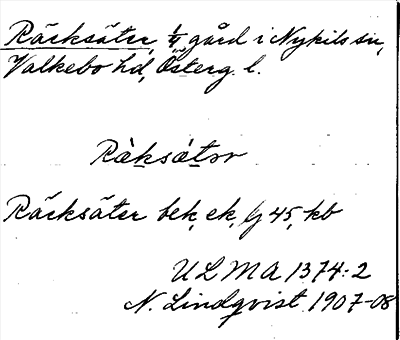 Räcksäter, 1/4 gård i Nykils sn,
Valkebo hd, Österg. l.
Räksätər
Räcksäter bek, ek, Jg 45, kb
ULMA 1374:2
N. Lindqvist 1907-08